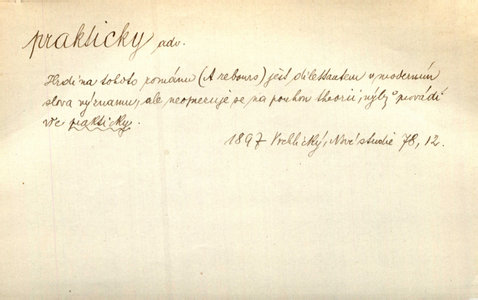 prakticky adv.
Hrdina tohoto románu (A rebours) jest diletantem v moderním
slova významu, ale neomezuje se na pouhou theorii, nýbrž provádí
vše prakticky.
1897 Vrchlický, Nové studie 78, 12.